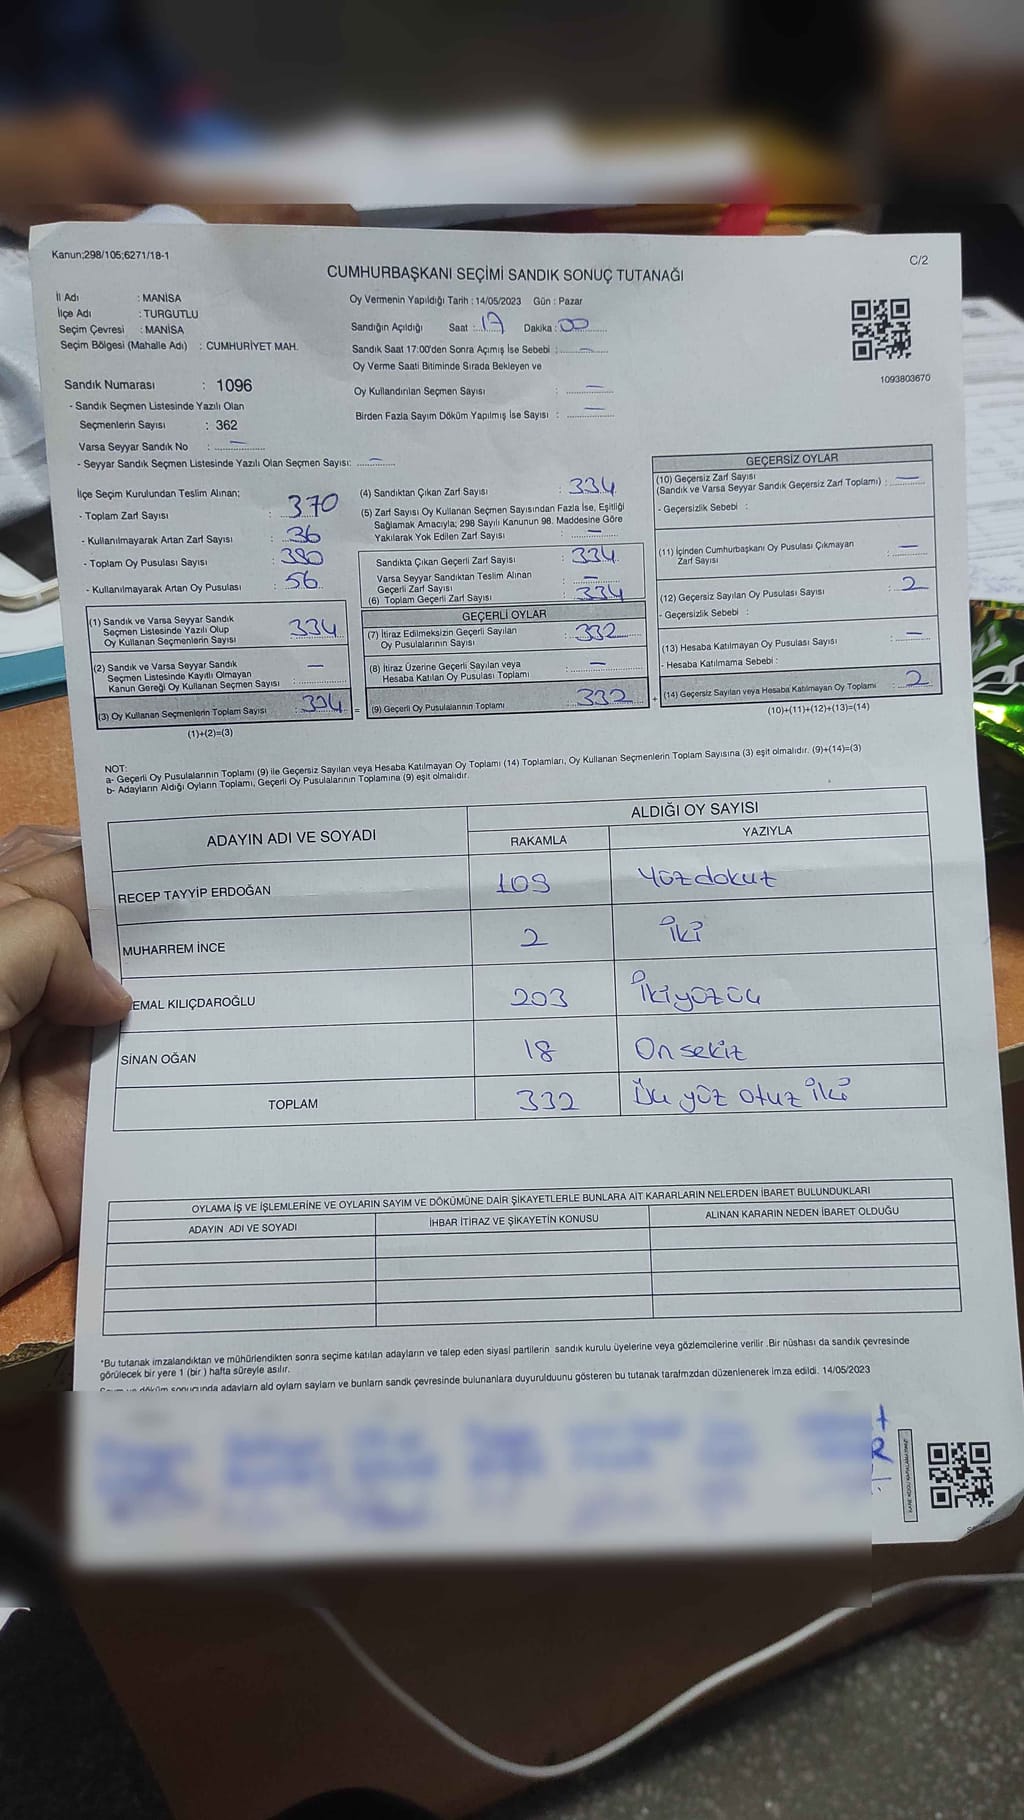 Kanun;298/105;6271/18-1
C/2
CUMHURBAŞKANI SEÇİMİ SANDIK SONUÇ TUTANAĞI
İl Adı : MANİSA
İlçe Adı : TURGUTLU
Seçim Çevresi : MANİSA
Seçim Bölgesi (Mahalle Adı) : CUMHURİYET MAH.
Sandık Numarası : 1096
- Sandık Seçmen Listesinde Yazılı Olan
Seçmenlerin Sayısı : 362
Varsa Seyyar Sandık No : —
- Seyyar Sandık Seçmen Listesinde Yazılı Olan Seçmen Sayısı: —
Oy Vermenin Yapıldığı Tarih : 14/05/2023 Gün : Pazar
Sandığın Açıldığı Saat : 17 Dakika : 00
Sandık Saat 17:00'den Sonra Açımış İse Sebebi : —
Oy Verme Saati Bitiminde Sırada Bekleyen ve
Oy Kullandırılan Seçmen Sayısı : —
Birden Fazla Sayım Döküm Yapılmış İse Sayısı : —
1093803670
İlçe Seçim Kurulundan Teslim Alınan;
- Toplam Zarf Sayısı : 370
- Kullanılmayarak Artan Zarf Sayısı : 36
- Toplam Oy Pusulası Sayısı : 390
- Kullanılmayarak Artan Oy Pusulası : 56
(1) Sandık ve Varsa Seyyar Sandık
Seçmen Listesinde Yazılı Olup
Oy Kullanan Seçmenlerin Sayısı : 334
(2) Sandık ve Varsa Seyyar Sandık
Seçmen Listesinde Kayıtlı Olmayan
Kanun Gereği Oy Kullanan Seçmen Sayısı : —
(3) Oy Kullanan Seçmenlerin Toplam Sayısı : 334 =
(1)+(2)=(3)
(4) Sandıktan Çıkan Zarf Sayısı : 334
(5) Zarf Sayısı Oy Kullanan Seçmen Sayısından Fazla İse, Eşitliği
Sağlamak Amacıyla; 298 Sayılı Kanunun 98. Maddesine Göre
Yakılarak Yok Edilen Zarf Sayısı : —
Sandıkta Çıkan Geçerli Zarf Sayısı : 334
Varsa Seyyar Sandıktan Teslim Alınan
Geçerli Zarf Sayısı : —
(6) Toplam Geçerli Zarf Sayısı : 334
GEÇERLİ OYLAR
(7) İtiraz Edilmeksizin Geçerli Sayılan
Oy Pusulalarının Sayısı : 332
(8) İtiraz Üzerine Geçerli Sayılan veya
Hesaba Katılan Oy Pusulası Toplamı : —
(9) Geçerli Oy Pusulalarının Toplamı : 332 +
GEÇERSİZ OYLAR
(10) Geçersiz Zarf Sayısı
(Sandık ve Varsa Seyyar Sandık Geçersiz Zarf Toplamı) : —
- Geçersizlik Sebebi :
(11) İçinden Cumhurbaşkanı Oy Pusulası Çıkmayan
Zarf Sayısı : —
(12) Geçersiz Sayılan Oy Pusulası Sayısı : 2
- Geçersizlik Sebebi :
(13) Hesaba Katılmayan Oy Pusulası Sayısı : —
- Hesaba Katılmama Sebebi :
(14) Geçersiz Sayılan veya Hesaba Katılmayan Oy Toplamı : 2
(10)+(11)+(12)+(13)=(14)
NOT:
a- Geçerli Oy Pusulalarının Toplamı (9) ile Geçersiz Sayılan veya Hesaba Katılmayan Oy Toplamı (14) Toplamları, Oy Kullanan Seçmenlerin Toplam Sayısına (3) eşit olmalıdır. (9)+(14)=(3)
b- Adayların Aldığı Oyların Toplamı, Geçerli Oy Pusulalarının Toplamına (9) eşit olmalıdır.
ADAYIN ADI VE SOYADI
ALDIĞI OY SAYISI
RAKAMLA YAZIYLA
RECEP TAYYİP ERDOĞAN 109 Yüz dokuz
MUHARREM İNCE 2 İki
EMAL KILIÇDAROĞLU 203 İkiyüzüç
SİNAN OĞAN 18 On sekiz
TOPLAM 332 Üç yüz otuz iki
OYLAMA İŞ VE İŞLEMLERİNE VE OYLARIN SAYIM VE DÖKÜMÜNE DAİR ŞİKAYETLERLE BUNLARA AİT KARARLARIN NELERDEN İBARET BULUNDUKLARI
ADAYIN ADI VE SOYADI İHBAR İTİRAZ VE ŞİKAYETİN KONUSU ALINAN KARARIN NEDEN İBARET OLDUĞU
*Bu tutanak imzalandıktan ve mühürlendikten sonra seçime katılan adayların ve talep eden siyasi partilerin sandık kurulu üyelerine veya gözlemcilerine verilir .Bir nüshası da sandık çevresinde
görülecek bir yere 1 (bir ) hafta süreyle asılır.
adayların ald oyların sayların ve bunların sandk çevresinde bulunanlara duyurulduunu gösteren bu tutanak tarafmzdan düzenlenerek imza edildi. 14/05/2023